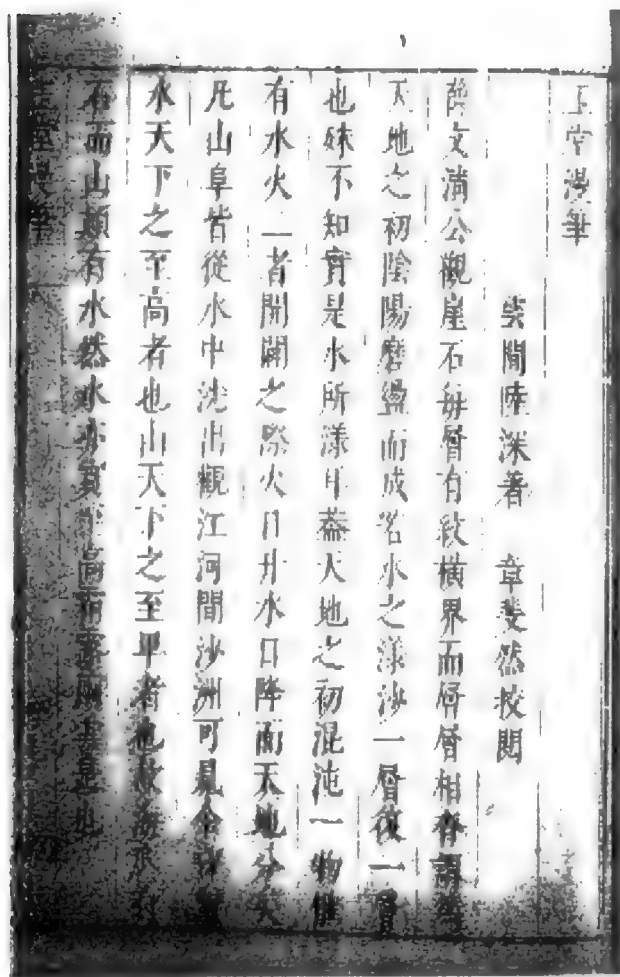 玉堂漫筆
雲間陸深著 章斐然校閱
薛文清公觀崖石每層有紋橫界而層層相沓謂
天地之初陰陽磨盪而成若水之漾沙一層復一層
也殊不知實是水所漾耳蓋天地之初混沌一物惟
有水火二者開闢之際火日升水日降而天地分矣
凡山阜皆從水中洗出觀江河間沙洲可見今
水天下之至高者也山天下之至平者也故海
石而山顛有水然水亦